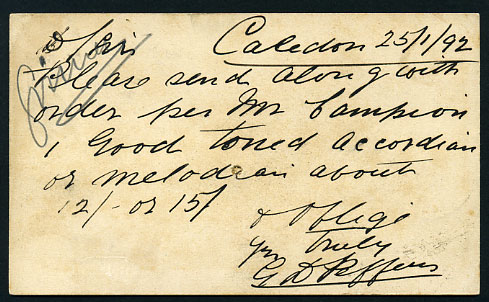 Sir Caledon 25/1/92
Please send along with
order per Mr Campion
1 Good toned accordian
or melodian about
12/- or 15/
& oblige
yrs truly